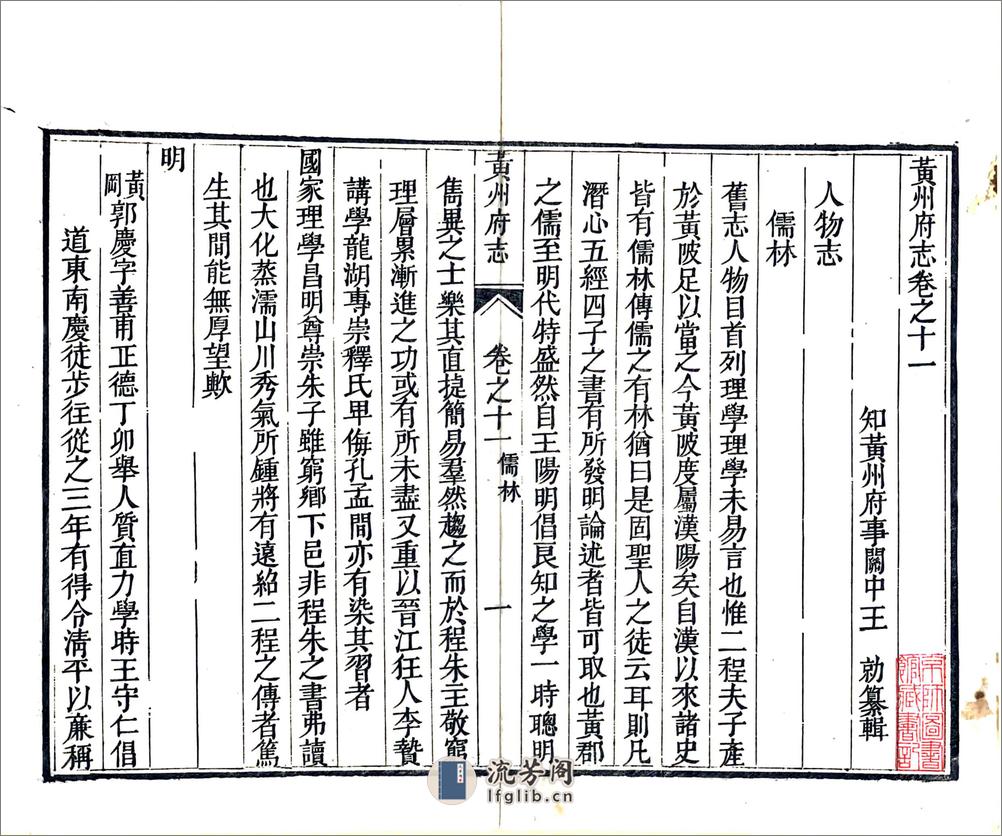 黃州府志卷之十一
知黃州府事關中王　勍纂輯
人物志
儒林
舊志人物目首列理學理學未易言也惟二程夫子產
於黃陂足以當之今黃陂度屬漢陽矣自漢以來諸史
皆有儒林傳儒之有林猶曰是固聖人之徒云耳則凡
潛心五經四子之書有所發明論述者皆可取也黃郡
之儒至明代特盛然自王陽明倡良知之學一時聰明
黃州府志
卷之十一 儒林
一
雋異之士樂其直捷簡易羣然趨之而於程朱主敬窮
理層累漸進之功或有所未盡又重以晉江狂人李贄
講學龍湖專崇釋氏甲侮孔孟間亦有染其習者
國家理學昌明尊崇朱子雖窮鄉下邑非程朱之書弗讀
也大化蒸濡山川秀氣所鍾將有遠紹二程之傳者篤
生其間能無厚望歟
明
黃岡郭慶字善甫正德丁卯舉人質直力學時王守仁倡
道東南慶徒步往從之三年有得令清平以廉稱
京師圖書館藏書記
流芳阁
lfglib.cn